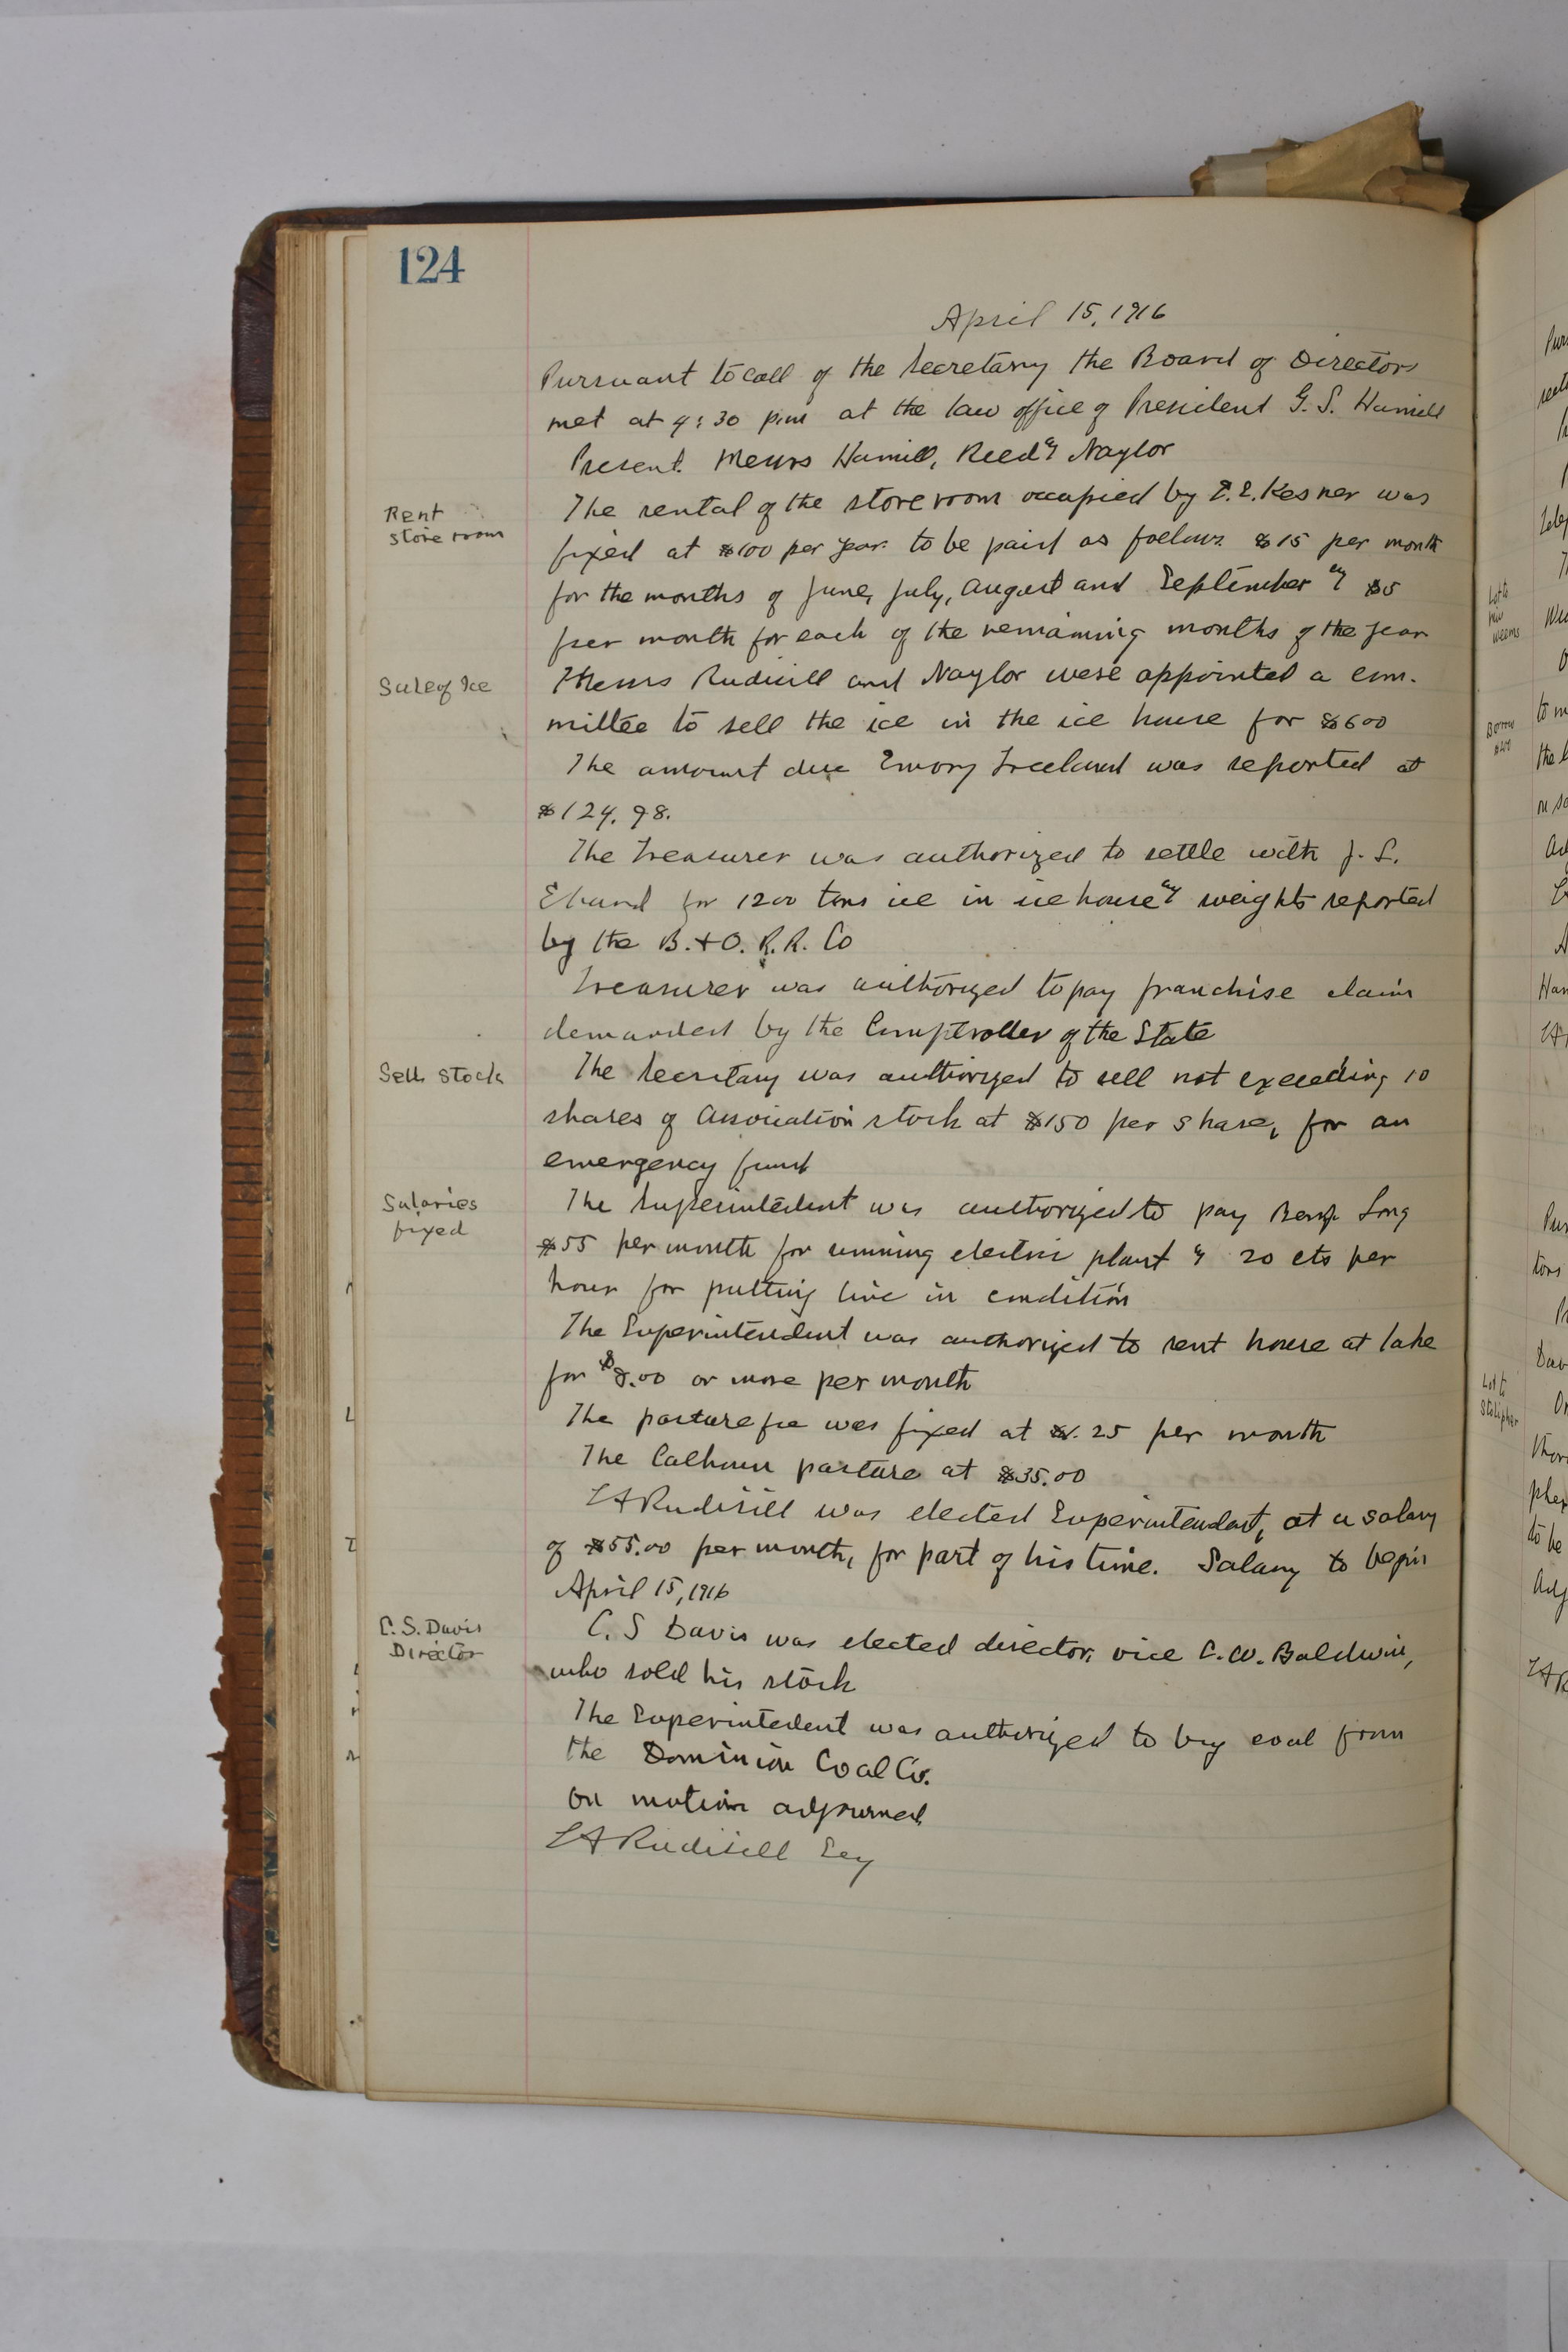 124
April 15, 1916
Pursuant to call of the Secretary the Board of Directors
met at 4:30 p.m at the law office of President G. S. Hamill
Present. Messrs Hamill, Reed & Naylor
Rent
store room
The rental of the store room occupied by E.E. Kesner was
fixed at $100 per year. to be paid as follows $15 per month
for the months of June, July, August and September & $5
per month for each of the remaining months of the year
Sale of Ice
Messrs Rudisill and Naylor were appointed a com-
mittee to sell the ice in the ice house for $600
The amount due Emory Freeland was reported at
$124.98.
The Treasurer was authorized to settle with J. S.
for 1200 tons ice in ice house & weights reported
by the B. & O. R.R. Co
Treasurer was authorized to pay franchise claim
demanded by the Comptroller of the State
Sell Stock
The Secretary was authorized to sell not exceeding 10
shares of Association stock at $150 per share, for an
emergency fund
Salaries
fixed
The Superintedent was authorized to pay Benj. Long
$55 per month for running electric plant & 20 cts per
hour for putting line in condition
The Superintendent was authorized to rent house at lake
for $8.00 or more per month
The pasture fee was fixed at $1.25 per month
The Calhoun pasture at $35.00
L A Rudisill was elected Superintendent, at a salary
of $55.00 per month, for part of his time. Salary to begin
April 15, 1916
C. S. Davis
Director
C. S Davis was elected director, vice C. W. Baldwin,
who sold his stock
The Superintedent was authorized to buy coal from
the Dominion Coal Co.
On motion adjourned
L A Rudisill Secy